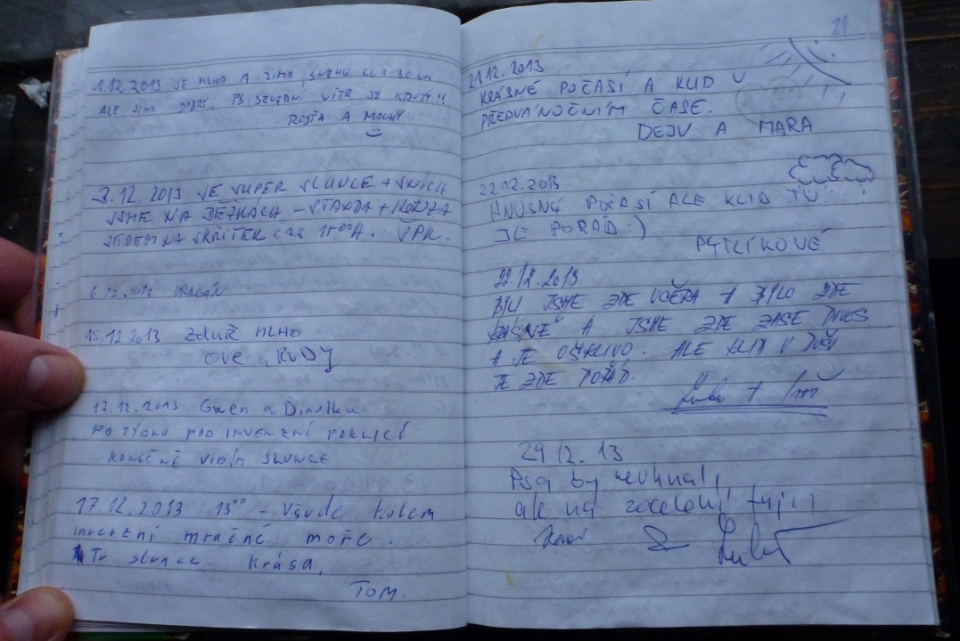 1.12.2013 JE MLHA A ZIMA, SNĚHU
ALE JSM DOBŘÍ. PS SEVERNÍ VÍTR JE KRUTÝ!!
ROSŤA A MACHY
3.12.2013 JE SUPER SLUNCE + SNÍCH
JSME NA BĚŽKÁCH - STANDA + HONZA
JEDEM NA SKŘÍTEK ČAS
6.12.2013 URAGÁN
15.12.2013 ZDUŘ MLHO
OVE, RUDY
17.12.2013 Gwen a Dinulka
PO TÝDNU POD INVERZNÍ POKLICÍ
KONEČNĚ VIDÍM SLUNCE
17.12.2013 13⁰⁰ - Všude kolem
inverzní mračné moře.
Tu slunce. Krása,
TOM.
21
21.12.2013
KRÁSNÉ POČASÍ A KLID V
PŘEDVÁNOČNÍM ČASE.
DEJV A MARA
22.12.2013
HNUSNÝ POČASÍ ALE KLID TU
JE POŘÁD :)
PYTLÍKOVÉ
22/12.2013
BYLI JSME ZDE VČERA + BYLO ZDE
KRÁSNĚ A JSME ZDE ZASE DNES
A JE OŠKLIVO. ALE KLID V DUŠI
JE ZDE POŘÁD.
29.12.13
Psa by nevyhnal,
ale na zocelení fajn!